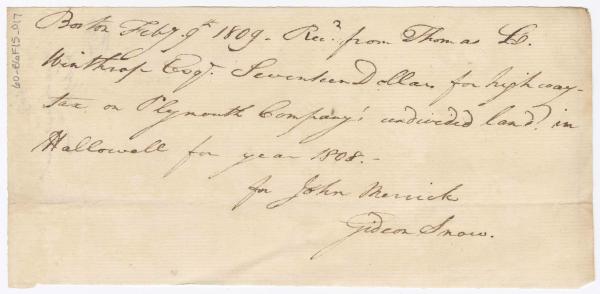 Boston Feby. 9th 1809. Recd. from Thomas L.
Winthrop Esqr. Seventeen Dollars for high way-
tax on Plymouth Company's undivided land, in
Hallowell for year 1808.-
for John Merrick
Gideon Snow.
60-86F15_017